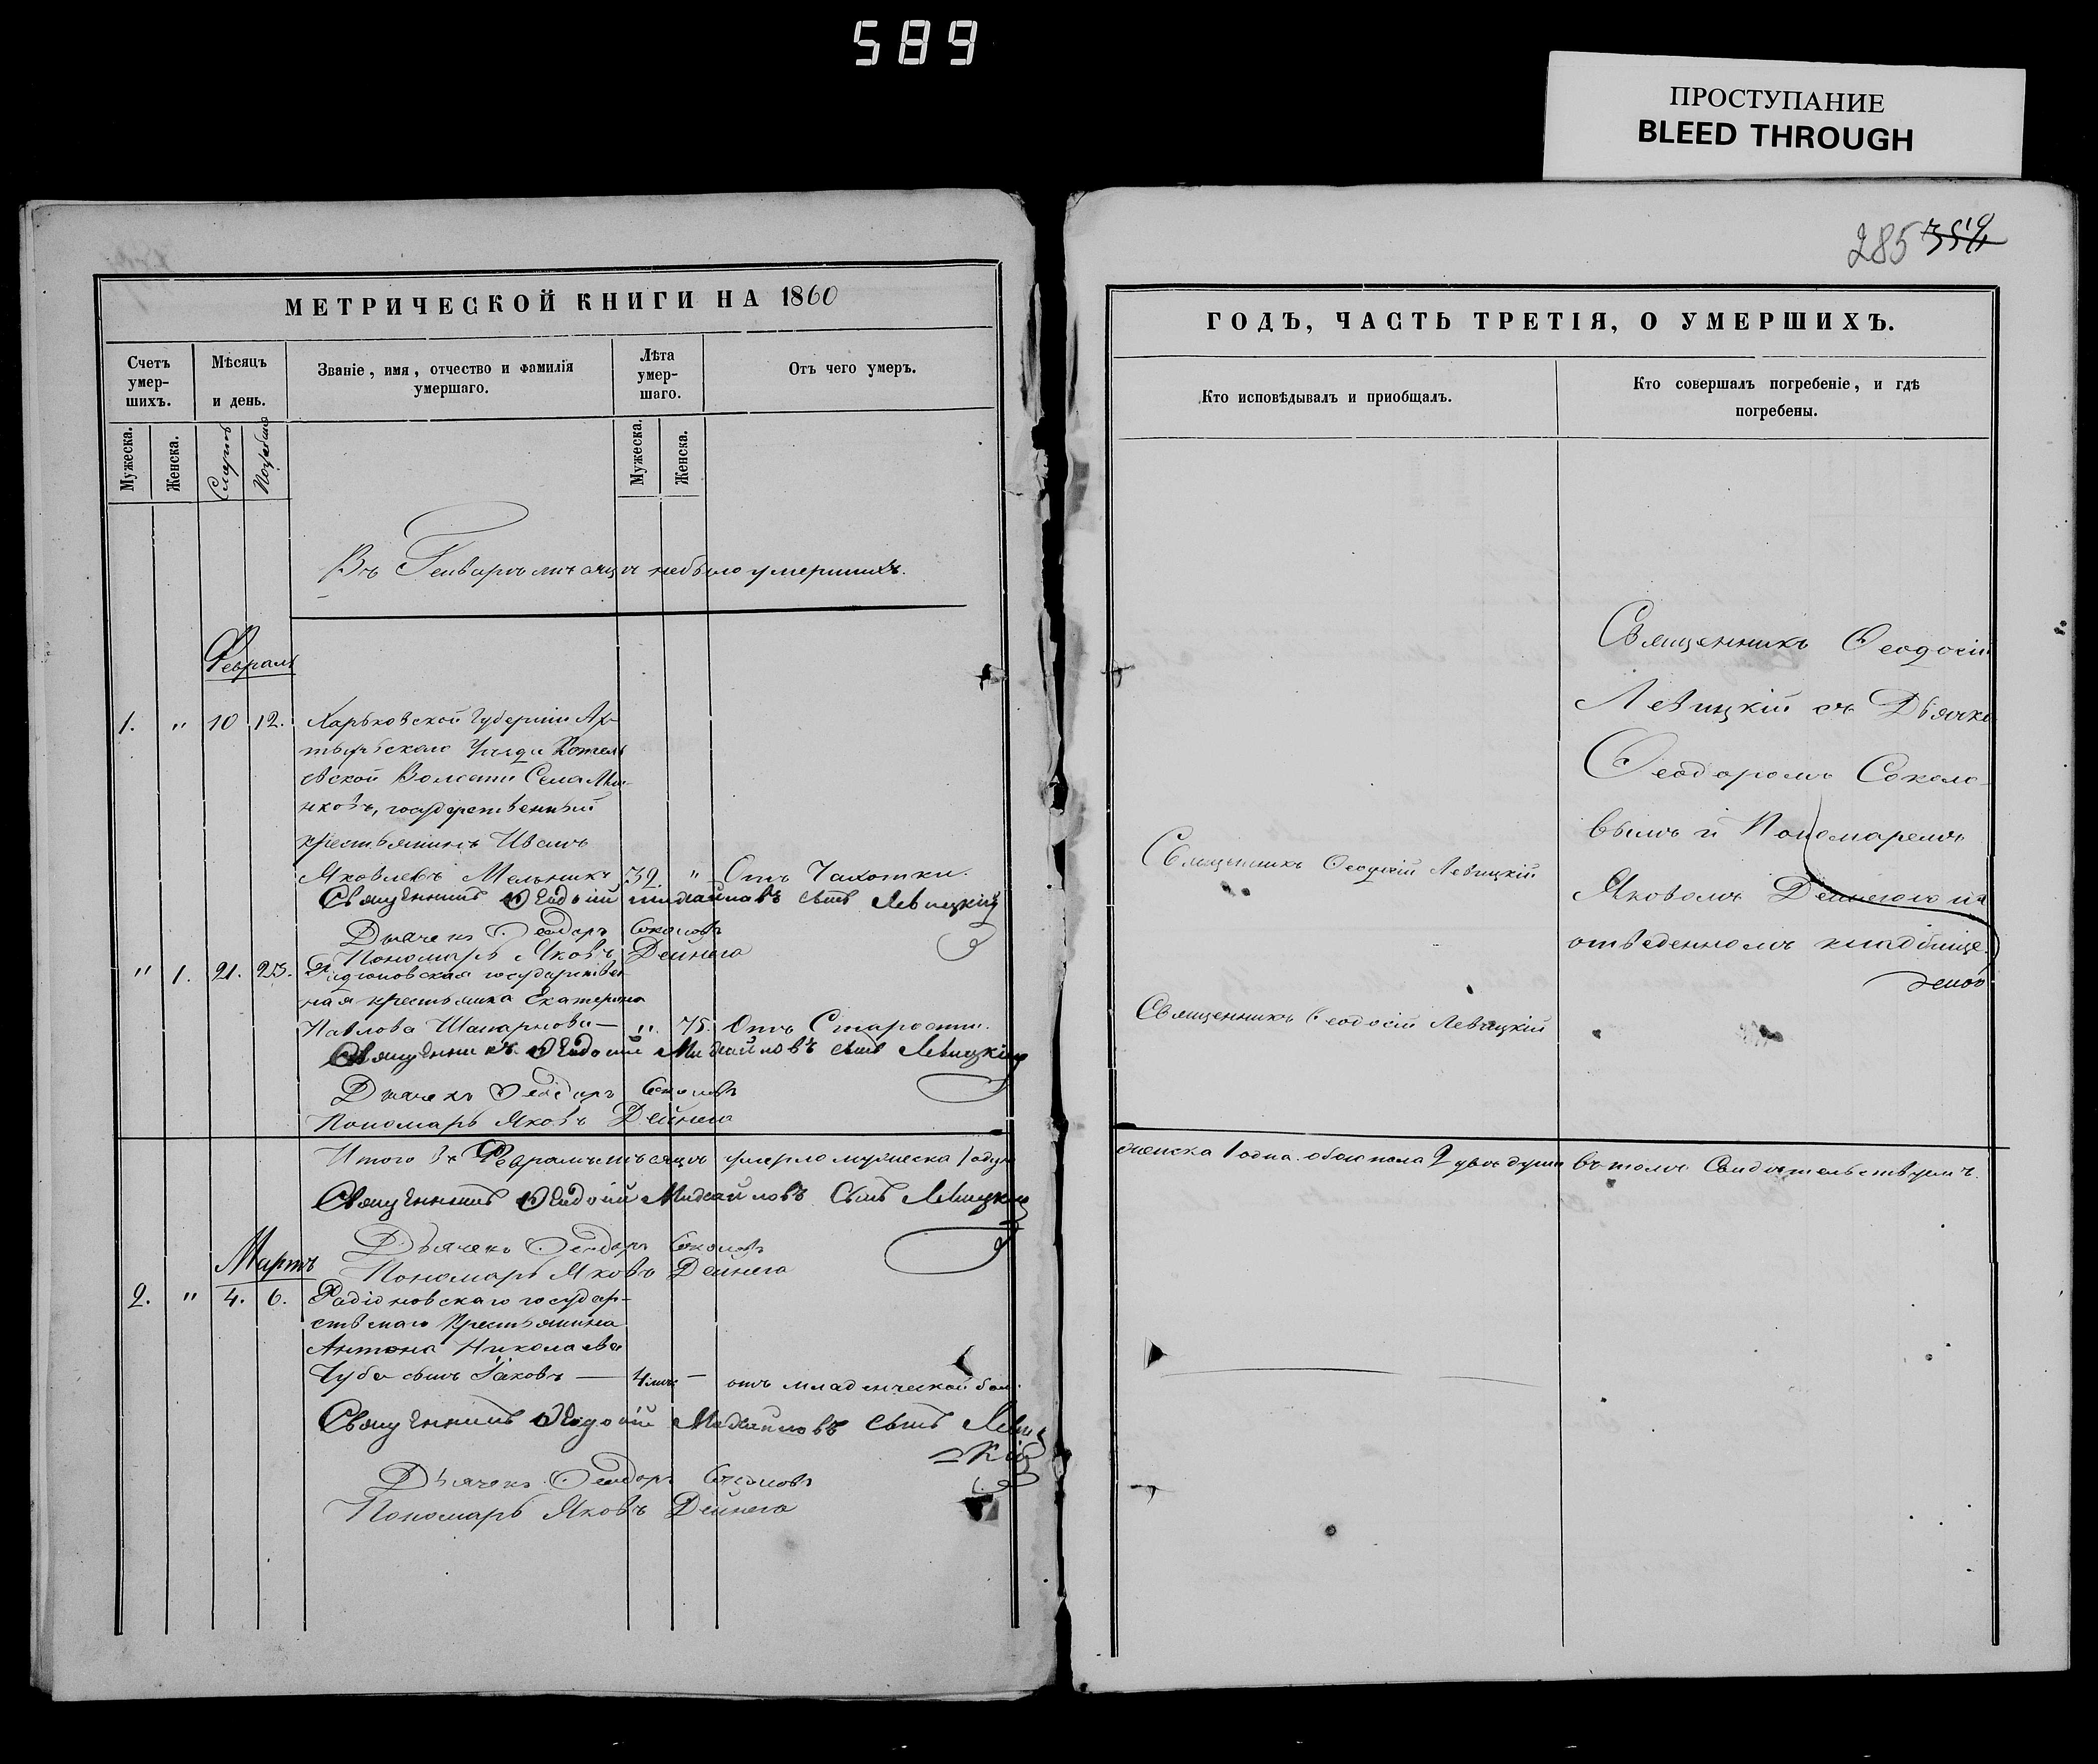 589
ПРОСТУПАНИЕ
BLEED THROUGH
285 352
МЕТРИЧЕСКОЙ КНИГИ НА 1860
Счетъ умер-шихъ.
Мѣсяцъ и день.
Званіе, имя, отчество и фамилія умершаго.
Лѣта умер-шаго.
Отъ чего умеръ.
Мужеска.
Женска.
Смерти
Погребенія
Мужеска.
Женска.
Въ Генварѣ мѣсяцѣ небыло умершихъ.
Февраль
1. " 10 12. Харьковской Губерніи Ах-
тырьского Уѣзда Котель
евской Волости Села Мли-
нковъ, государственный
крестьянинъ Иванъ
Яковлевъ Мельникъ 32. " Отъ Чахотки.
Священникъ Ѳеодосій Михайловъ сынъ Левицкій
Дьячекъ Ѳеодоръ Соколовъ
Пономарь Яковъ Дейнега
" 1. 21. 23. Радіоновская государствен
ная крестьянка Екатерина
Павлова Шапарнова — " 75. Отъ Старости.
Священникъ Ѳеодосій Михайловъ сынъ Левицкій
Дьячекъ Ѳеодоръ Соколовъ
Пономарь Яковъ Дейнега
Итого въ Февралѣ мѣсяцѣ умерло мужеска 1 одинъ
Священникъ Ѳеодосій Михайловъ Сынъ Левицкій
Дьячекъ Ѳеодоръ Соколовъ
Пономарь Яковъ Дейнега
Мартъ
2. " 4. 6. Радіоновскаго государ-
ственаго Крестьянина
Антона Николаева
Чуба сынъ Іаковъ — 4 мѣс — отъ младенческой бол.
Священникъ Ѳеодосій Михайловъ сынъ Леви
цкій
Дьячекъ Ѳеодоръ Соколовъ
Пономарь Яковъ Дейнега
ГОДЪ, ЧАСТЬ ТРЕТІЯ, О УМЕРШИХЪ.
Кто исповѣдывалъ и приобщалъ.
Кто совершалъ погребеніе, и гдѣ
погребены.
Священникъ Ѳеодосій
Левицкій съ Дьячко
Ѳеодоромъ Соколо-
вымъ и Пономаремъ
Яковомъ Дейнегою на
отведенномъ кладбище
Священникъ Ѳеодосій Левицкій
Священникъ Ѳеодосій Левицкій
женска 1 одна. обоего пола 2 двѣ души въ томъ Свидѣтельствуемъ.